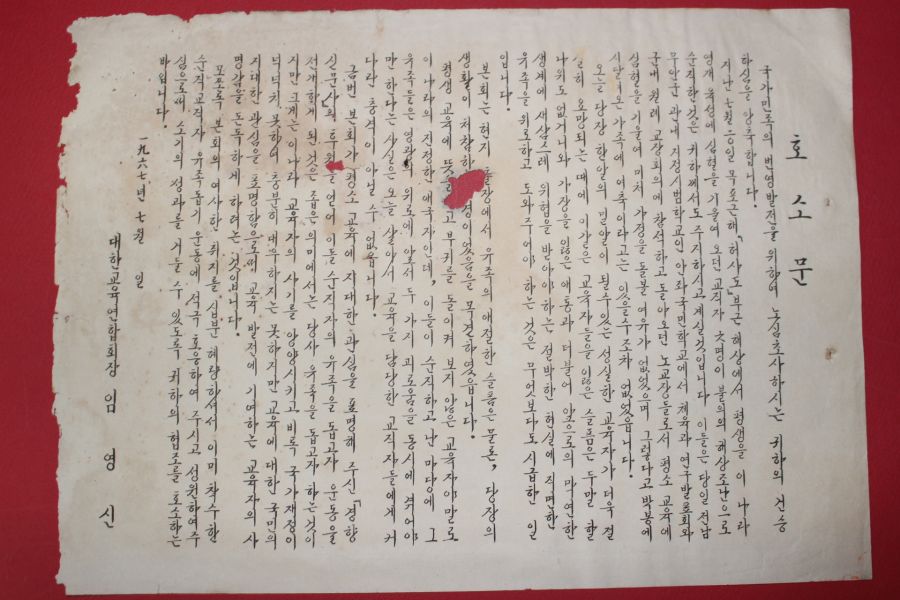 호소문
국가민족의 번영발전을 위하여 노심초사하시는 귀하의 건승
하심을 앙축합니다.
지난 七월 일 목포근해「허사도」부근 해상에서 평생을 이 나라
영재 육성에 심혈을 기울여 오던 교직자 명이 불의의 해상조난으로
순직한것은 귀하께서도 주지하시고 계실것입니다 이들은 당일 전남
무안군 관내 지정시범학교인 안좌국민학교에서 체육과 연구발표회와
군내 월례 교장회의에 참석하고 돌아오던 노교장들로서 평소 교육에
심혈을 기울여 미처 가정을 돌볼 여유가 없었으며 그렇다고 박봉에
시달려온 가족에 여축이라고는 있을수조차 없었읍니다.
온을 당장 한알의 밀알이 될수있는 성실한 교육자가 더욱 절
실히 요망되는 때에 이같은 교육자들을 잃은 슬픔은 두말 할
나위도 없거니와 가장을 잃은 애통과 더불어 앞으로의 막연한
생계에 새삼스레 위협을 받아야 하는 절박한 현실에 직면한
유족을 위로하고 도와주어야 하는 것은 무엇보다도 시급한 일
입니다.
본회는 현지 장에서 유족의 애절한 슬픔은 물론, 당장의
생활이 처참하 경이었음을 목격하였읍니다.
평생 교육에 뜻을 고 부귀를 돌이켜 보지 않은 교육자야말로
이 나라의 진정한 애국자인데, 이들이 순직하고 난 마당에 그
유족들은 영광의 위로에 앞서 두가지 괴로움을 동시에 겪어야
만 하다는 사실은 오늘 살아서 교육을 담당한 교직자들에게 커
다란 충격이 아닐 수 없읍니다.
금번 본회가 평소 교육에 지대한 관심을 표명해 주신「경향
신문사」의 후원을 얻어 이들 순직자의 유족을 돕고자 운동을
전개하게 된 것은 좁은 의미에서는 당사 유족을 돕고자 하는 것이
지만 크게는 이 나라 교육자의 사기를 앙양시키고, 비록 국가 재정이
넉넉지 못하여 충분히 대우하지는 못하지만 교육에 대한 국민의
지대한 관심을 표명함으로써 교육 발전에 기여하는 교육자의 사
명감을 돈독하게 하려는 것이입니다.
모쪼록 본회의 여사한 취지를 십분 혜량하셔서 이미 착수한
순직교직자 유족돕기 운동에 적극 호응하여 주시고 성원하여주
심으로써 소기의 성과를 거둘 수 있도록 귀하의 협조를 호소하는
바입니다.
一九六七년 七월 일
대한교육연합회장 임영신